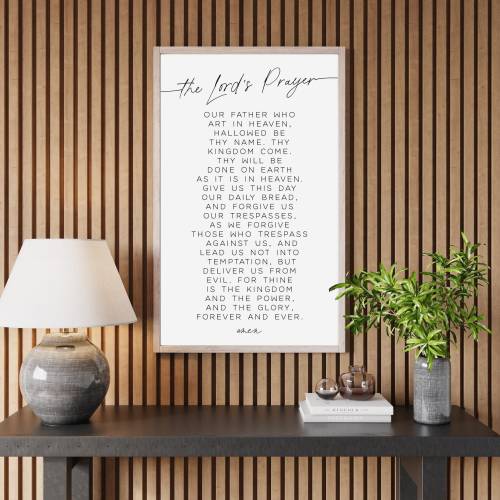 the Lord's Prayer
OUR FATHER WHO
ART IN HEAVEN,
HALLOWED BE
THY NAME. THY
KINGDOM COME.
THY WILL BE
DONE ON EARTH
AS IT IS IN HEAVEN.
GIVE US THIS DAY
OUR DAILY BREAD,
AND FORGIVE US
OUR TRESPASSES,
AS WE FORGIVE
THOSE WHO TRESPASS
AGAINST US, AND
LEAD US NOT INTO
TEMPTATION, BUT
DELIVER US FROM
EVIL. FOR THINE
IS THE KINGDOM
AND THE POWER,
AND THE GLORY,
FOREVER AND EVER.
amen